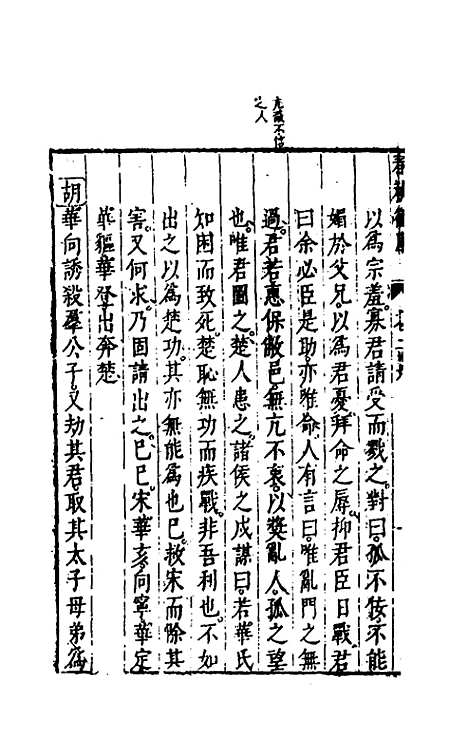 亢戚不信
之人
以爲宗羞寡君請受而戮之對曰孤不佞不能
媚於父兄以爲君憂拜命之辱抑君臣日戰君
曰余必臣是助亦唯命人有言曰唯亂門之無
過君若惠保敝邑無亢不衷以奬亂人孤之望
也唯君圖之楚人患之諸侯之戍謀曰若華氏
知困而致死楚恥無功而疾戰非吾利也不如
出之以爲楚功其亦無能爲也巳救宋而除其
害又何求乃固請出之巳巳宋華亥向寧華定
華貙華登出奔楚
胡華向誘殺羣公子又劫其君取其太子母弟爲